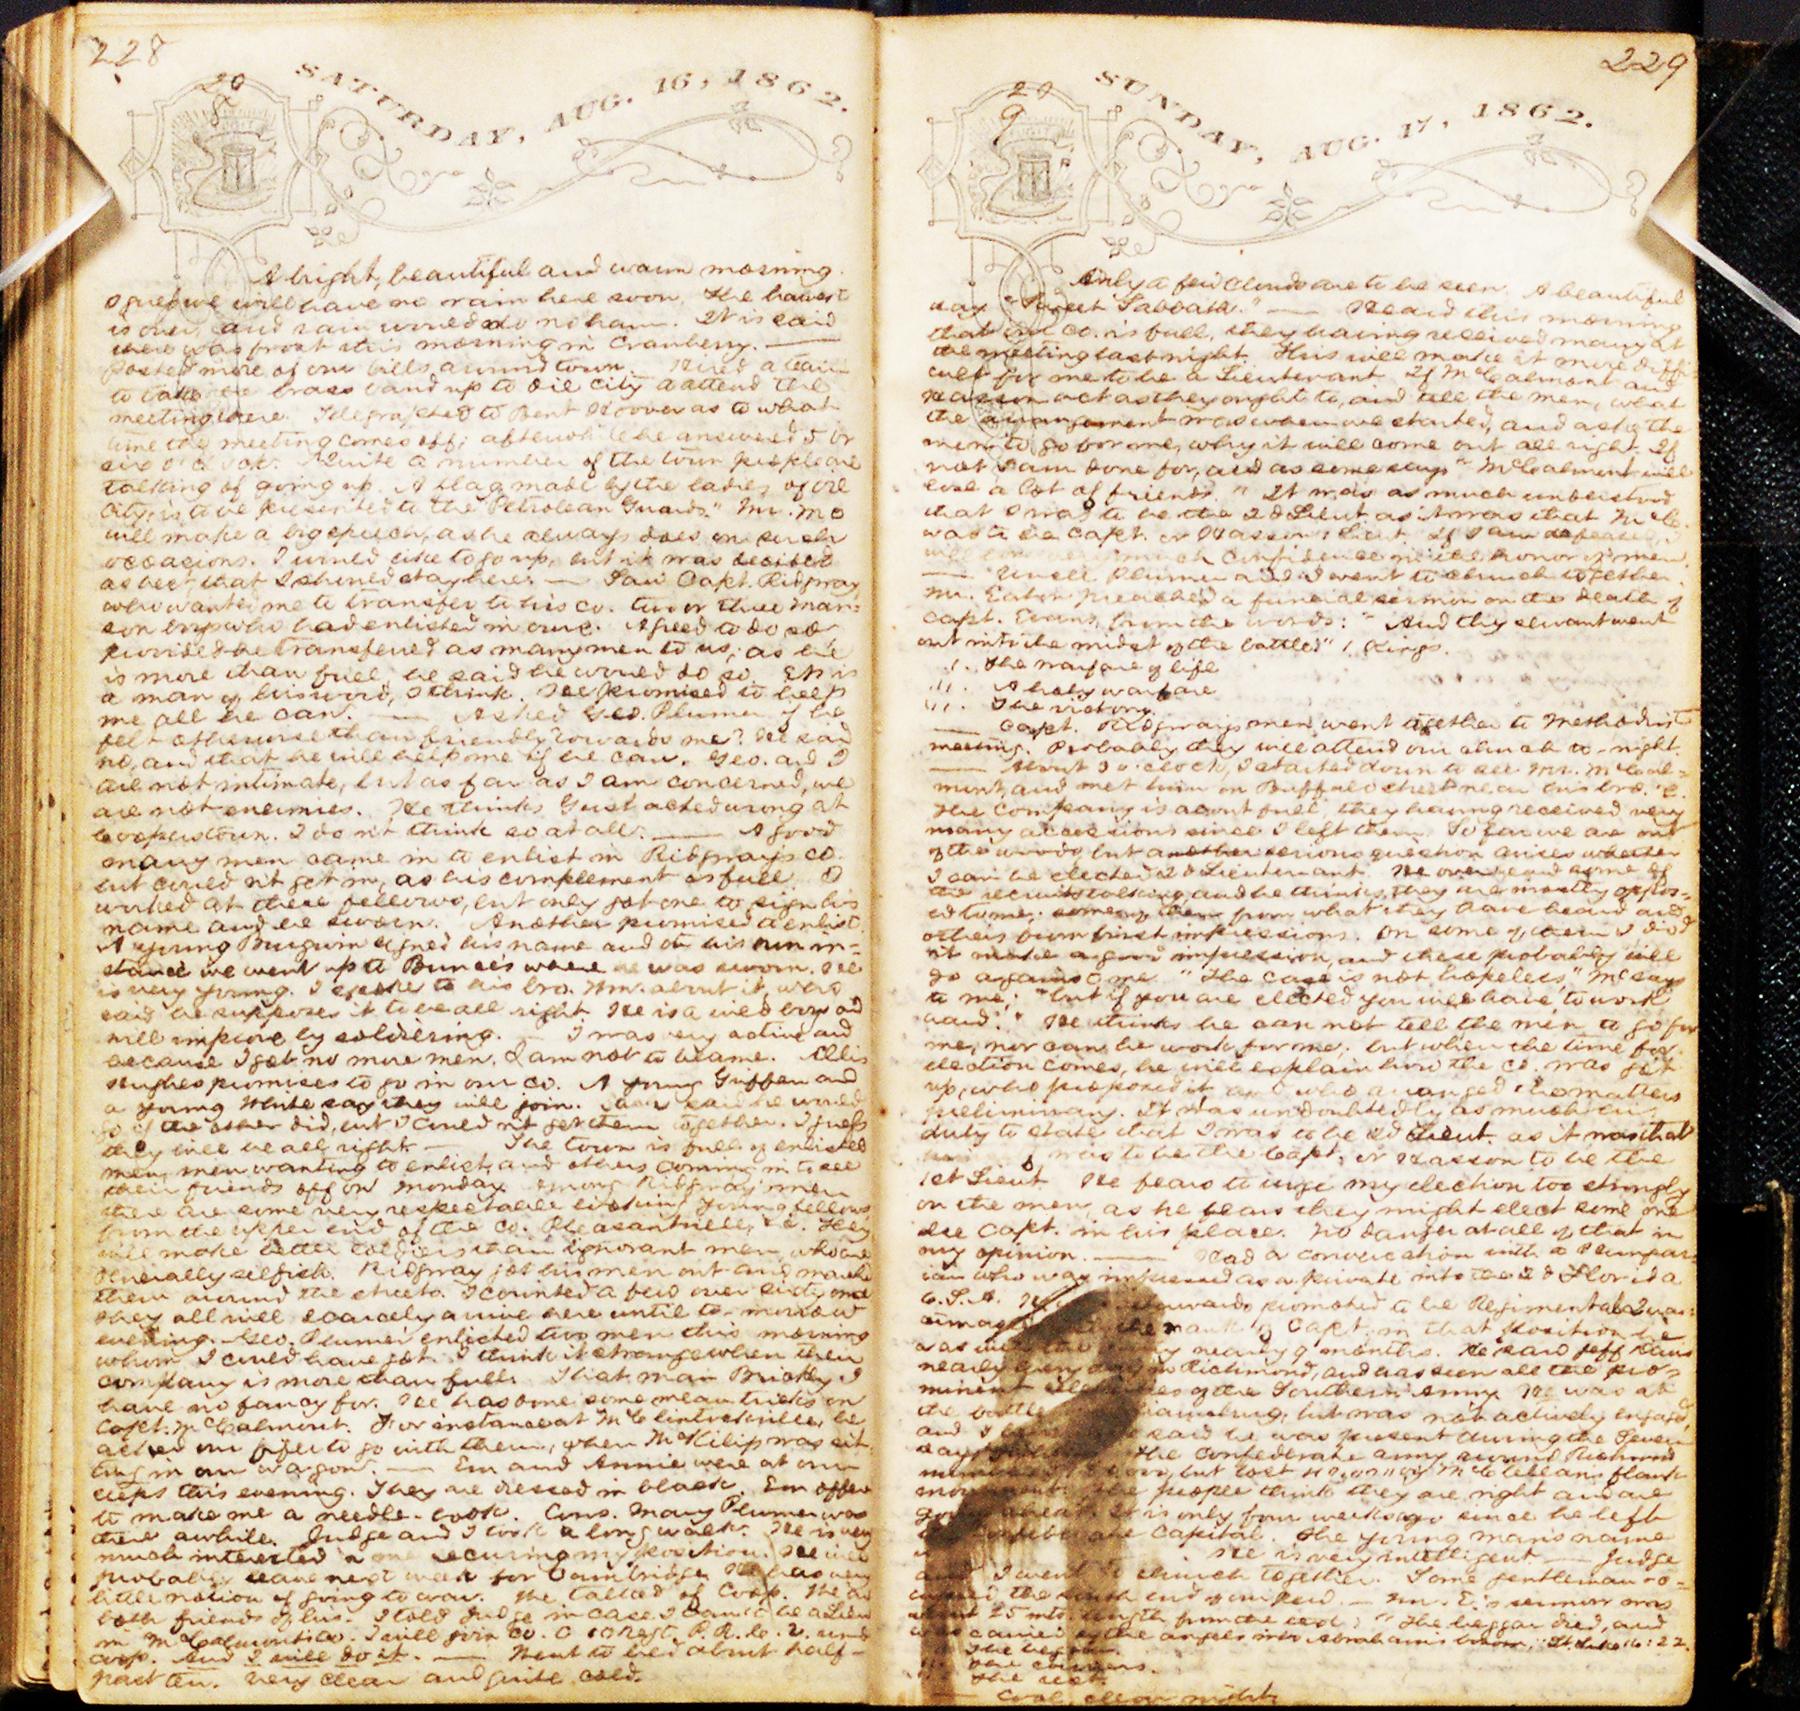 228
20
8
SATURDAY, AUG. 16, 1862.
A bright, beautiful and warm morning.
I guess we will have no rain here soon. The harvest
is over, and rain would do no harm. It is said
there was frost this morning in Cranberry. —
Posted more of our bills around town. Hired a team
to take the brass band up to Oil City to attend the
meeting there. Telegraphed to Bent Hoover as to what
time the meeting comes off; after while he answered 5 or
six o'clock. Quite a number of the town people are
talking of going up. A flag made by the ladies of Oil
City, is to be presented to the "Petrolean Guards." Mr. Mc
will make a big speech, as he always does on such
occasions. I would like to go up, but it was decided
as best, that I should stay here. — Saw Capt. Ridgway,
who wanted me to transfer to his co. two or three
boys who had enlisted in ours. Agreed to do so
provided he transferred as many men to us, as he
is more than full, he said he would do so. He is
a man of his word, I think. He promised to help
me all he can. — Asked Geo. Plumer if he
felt otherwise than friendly towards me? He said
no, and that he will help me if he can. Geo. and I
are not intimate, but as far as I am concerned, we
are not enemies. He thinks Gust acted wrong at
Cooperstown. I don't think so at all. — A good
many men came in to enlist in Ridgway's co.
but could n't get in, as his complement is full. I
worked at these fellows, but only got one to sign his
name and be sworn. Another promised to enlist.
A young Burgwin signed his name and on his own in-
stance we went up to Bunce's where he was sworn. He
is very young. I spoke to his bro. Wm. about it, who
said he supposes it to be all right. He is a wild boy and
will improve by soldiering. — I was very active and
because I got no more men, I am not to blame. Allis
Hughes promises to go in our co. A young Griffen and
a young White say they will join. said he would
go if the other did, but I could n't get them together. I guess
they will be all right. — The town is full of enlisted
men, men wanting to enlist, and others coming in to see
their friends off on Monday. Among Ridgway's men
there are some very respectable looking young fellows
from the upper end of the co. Pleasantville, &c. They
will make better soldiers than ignorant men, who are
generally selfish. Ridgway got his men out and marched
them around the streets. I counted a few over sixty, and
they all will scarcely arrive here until to-morrow
evening. Geo. Plumer enlisted two men this morning
whom I could have got. I think it strange when their
company is more than full. That man Brickly I
have no fancy for. He has done some mean tricks on
Capt. McCalmont. For instance at McClintockville, he
asked our fifer to go with them, when McKilip was sit-
ting in our wagon. — Em and Annie were at our
steps this evening. They are dressed in black. Em offers
to make me a needle-book. Cous. Mary Plumer was
there awhile. Judge and I took a long walk. He is very
much interested in me securing my position. He will
probably leave next week for Cambridge. He has very
little notion of going to war. We talked of Coop. He and
both friends of his. I told Judge in case I can't be a Lieut
in McCalmont's co. I will join Co. C 10 Regt. P. R. Co. 2. and
Coop. And I will do it. — Went to bed about half-
past ten. Very clear and quite cold.
229
20
9
SUNDAY, AUG. 17, 1862.
Only a few clouds are to be seen. A beautiful
day. "Sweet Sabbath." — Heard this morning
that our co. is full, they having received many at
the meeting last night. This will make it more diffi-
cult for me to be a Lieutenant. If McCalmont and
Hasson act as they ought to, and tell the men, what
the arrangement was when we started, and ask the
men to go for me, why it will come out all right. If
not I am done for, and as some says "McCalmont will
lose a lot of friends." It was as much understood
that I was to be the 2d Lieut as it was that McC.
was to be Capt. or Hasson 1 Lieut. If I am defeated, I
will much confidence in the honor of men.
— Uncle Plumer and I went to church together.
Mr. Eaton preached a funeral sermon on the death of
Capt. Evans, from the words: "And thy servant went
out into the midst of the battle" 1 Kings.
I. The warfare of life
II. A holy warfare
III. The victory.
— Capt. Ridgway's men went together to Methodist
meeting. Probably they will attend our church to-night.
— About o'clock, I started down to see Mr. McCal-
mont, and met him on Buffalo street near his bro.
The Company is about full, they having received very
many accessions since I left them. So far we are out
of the woods, but another serious question arises whether
I can be elected 2d Lieutenant. He overheard some of
the recruits talking, and he thinks, they are mostly oppos-
ed to me; some of them from what they have heard and
others from first impressions. On some of them I did
n't make a good impression, and these probably will
go against me. "The case is not hopeless," Mc says
to me; "but if you are elected you will have to work
hard." He thinks he can not tell the men to go for
me, nor can he work for me; but when the time for
election comes, he will explain how the co. was got
up, who proposed it and who arranged the matters
preliminary. It was undoubtedly as much his
duty to state that I was to be 2d Lieut. as it was that
was to be the Capt. or Hasson to be the
1st Lieut. He fears to urge my election too strongly
on the men, as he fears they might elect some one
else Capt. in his place. No danger at all of that in
my opinion. — Had a conversation with a
who was impressed as a private into the 2d Florida
C.S.A. afterwards promoted to be Regimental Quar-
the rank of Capt. in that position he
was with the nearly 9 months. He saw Jeff Davis
nearly every day in Richmond, and has seen all the pro-
minent of the Southern Army. He was at
the battle but was not actively engaged,
and said he was present during the Seven
days The Confederate army around Richmond
but lost by McClellan's flank
movement. The people think they are right and are
It is only four weeks ago since he left
Capital. The young man's name
He is very intelligent — Judge
and I went to church together. Some gentleman o-
the south end of our pew. — Mr. E.'s sermon was
about 25 mts. length from the text: "The beggar died, and
was carried by the angels into Abraham's bosom," St. Luke 16:22.
The beggar.
The carriers.
The rest.
— Cool, clear night.